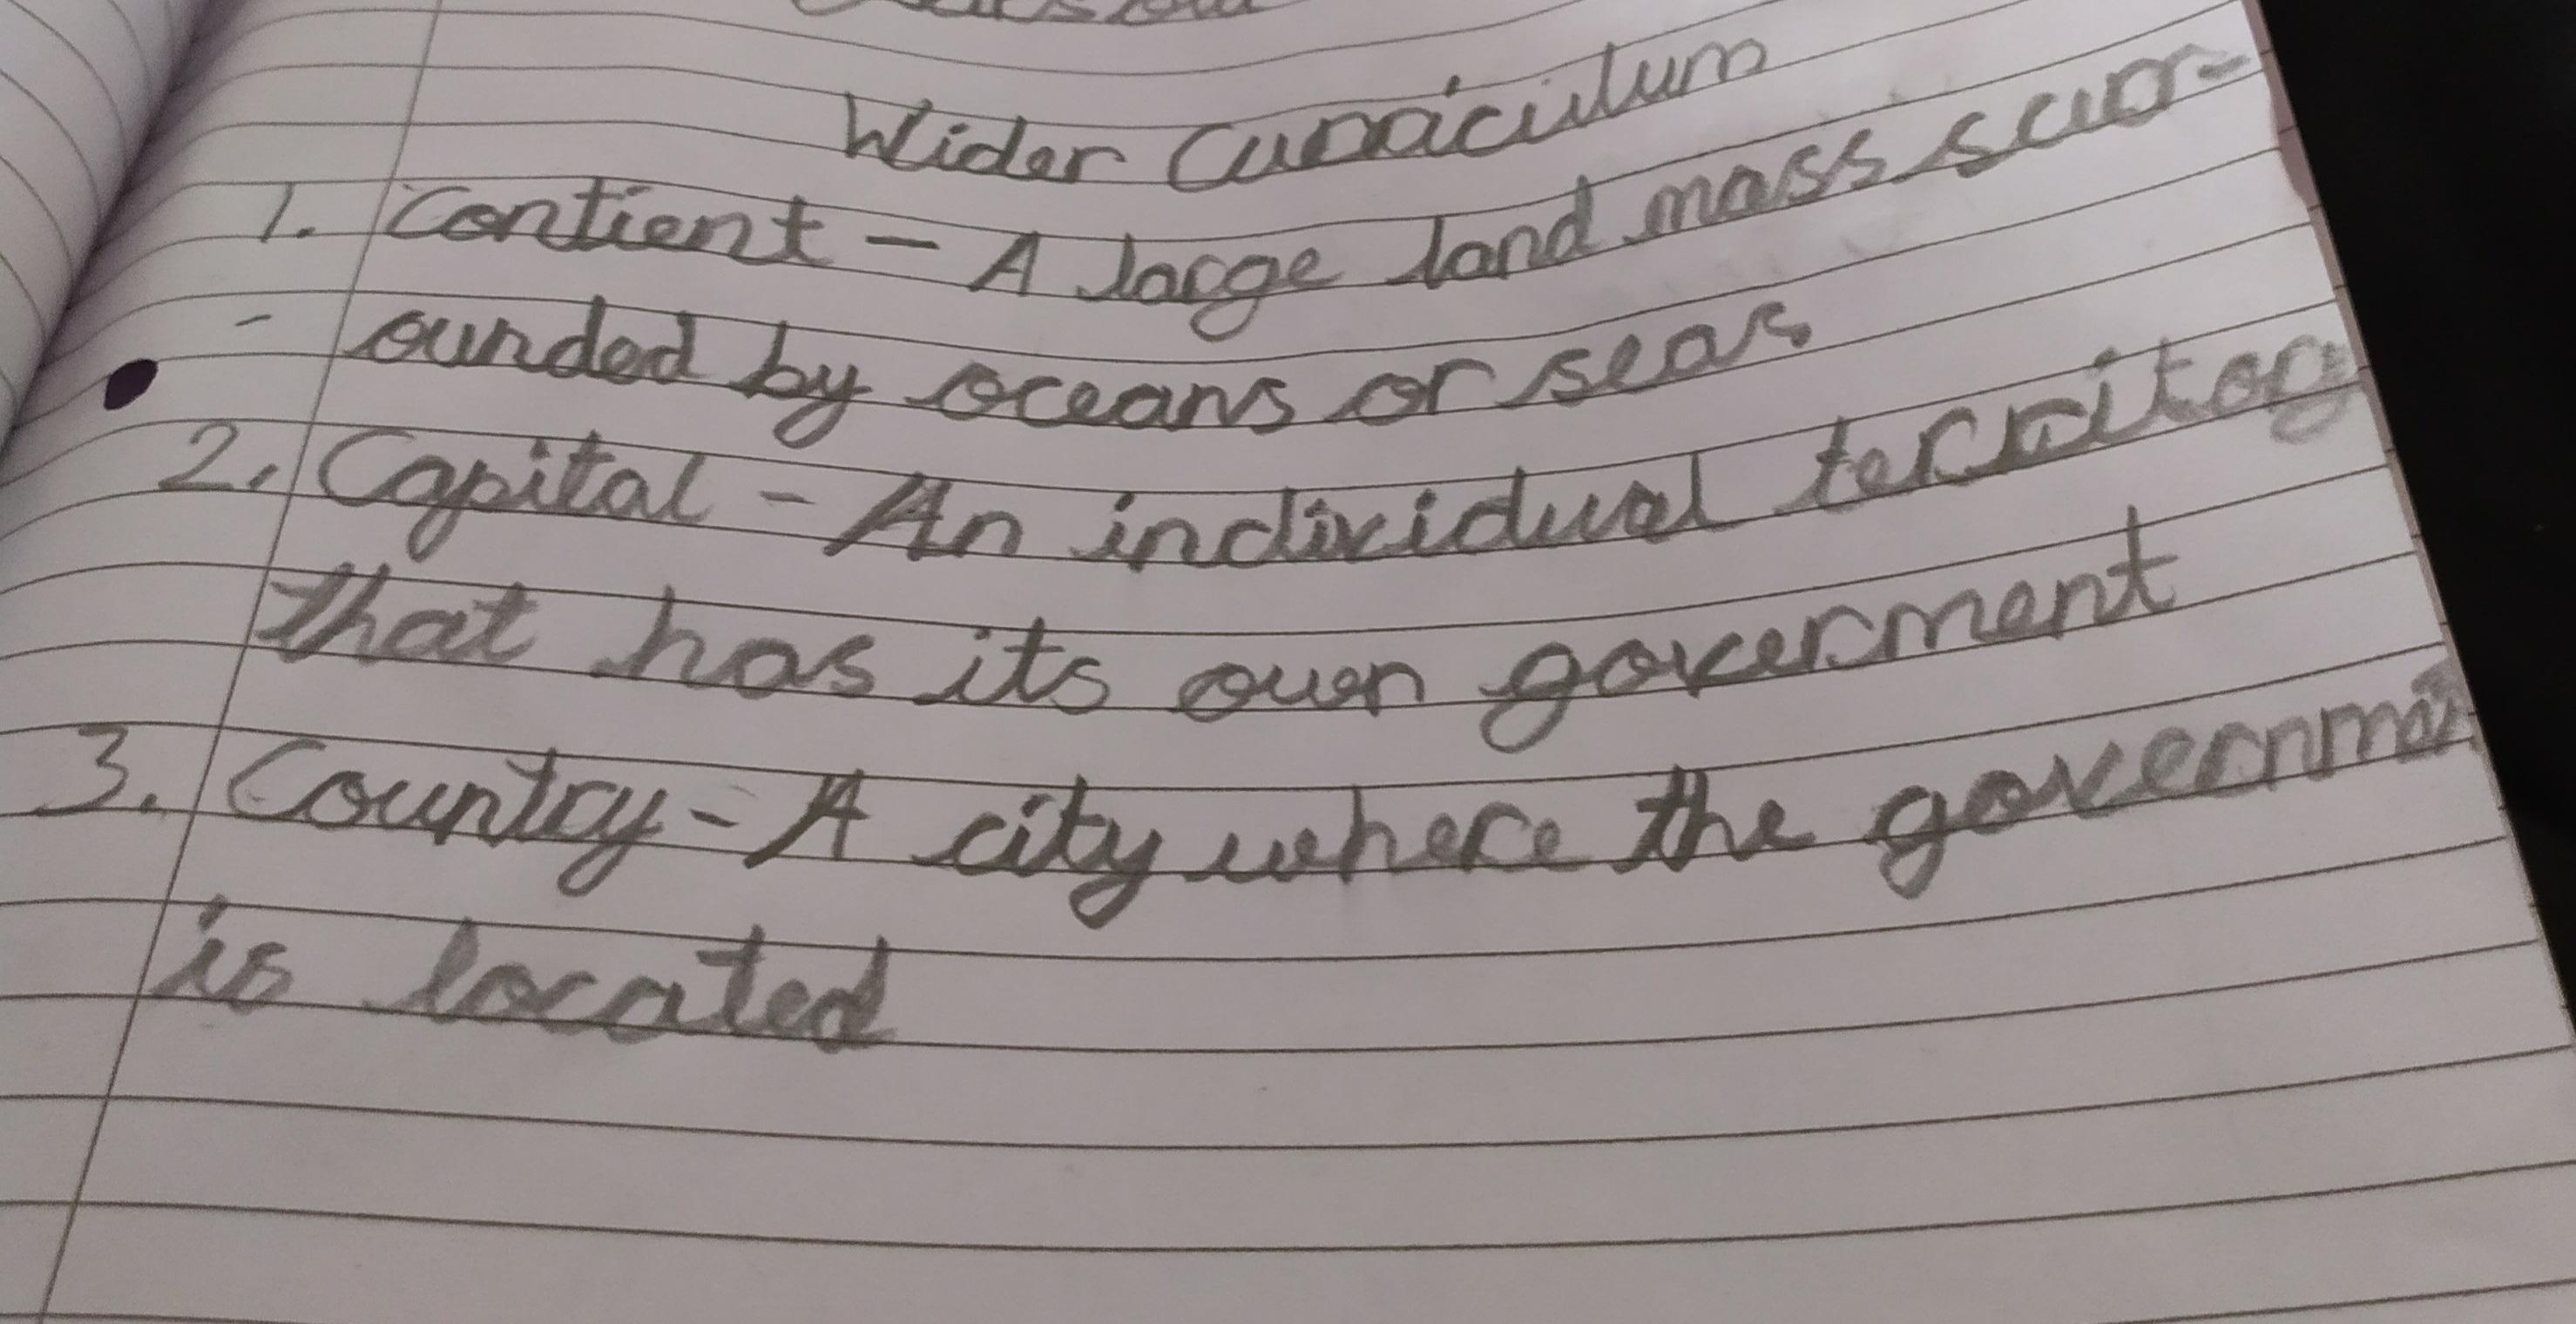 Wider Curriculum
1. Contient - A large land mass surr-
- ounded by oceans or seas
2. Capital - An individual territory
that has its own goverment
3. Country - A city where the
is located